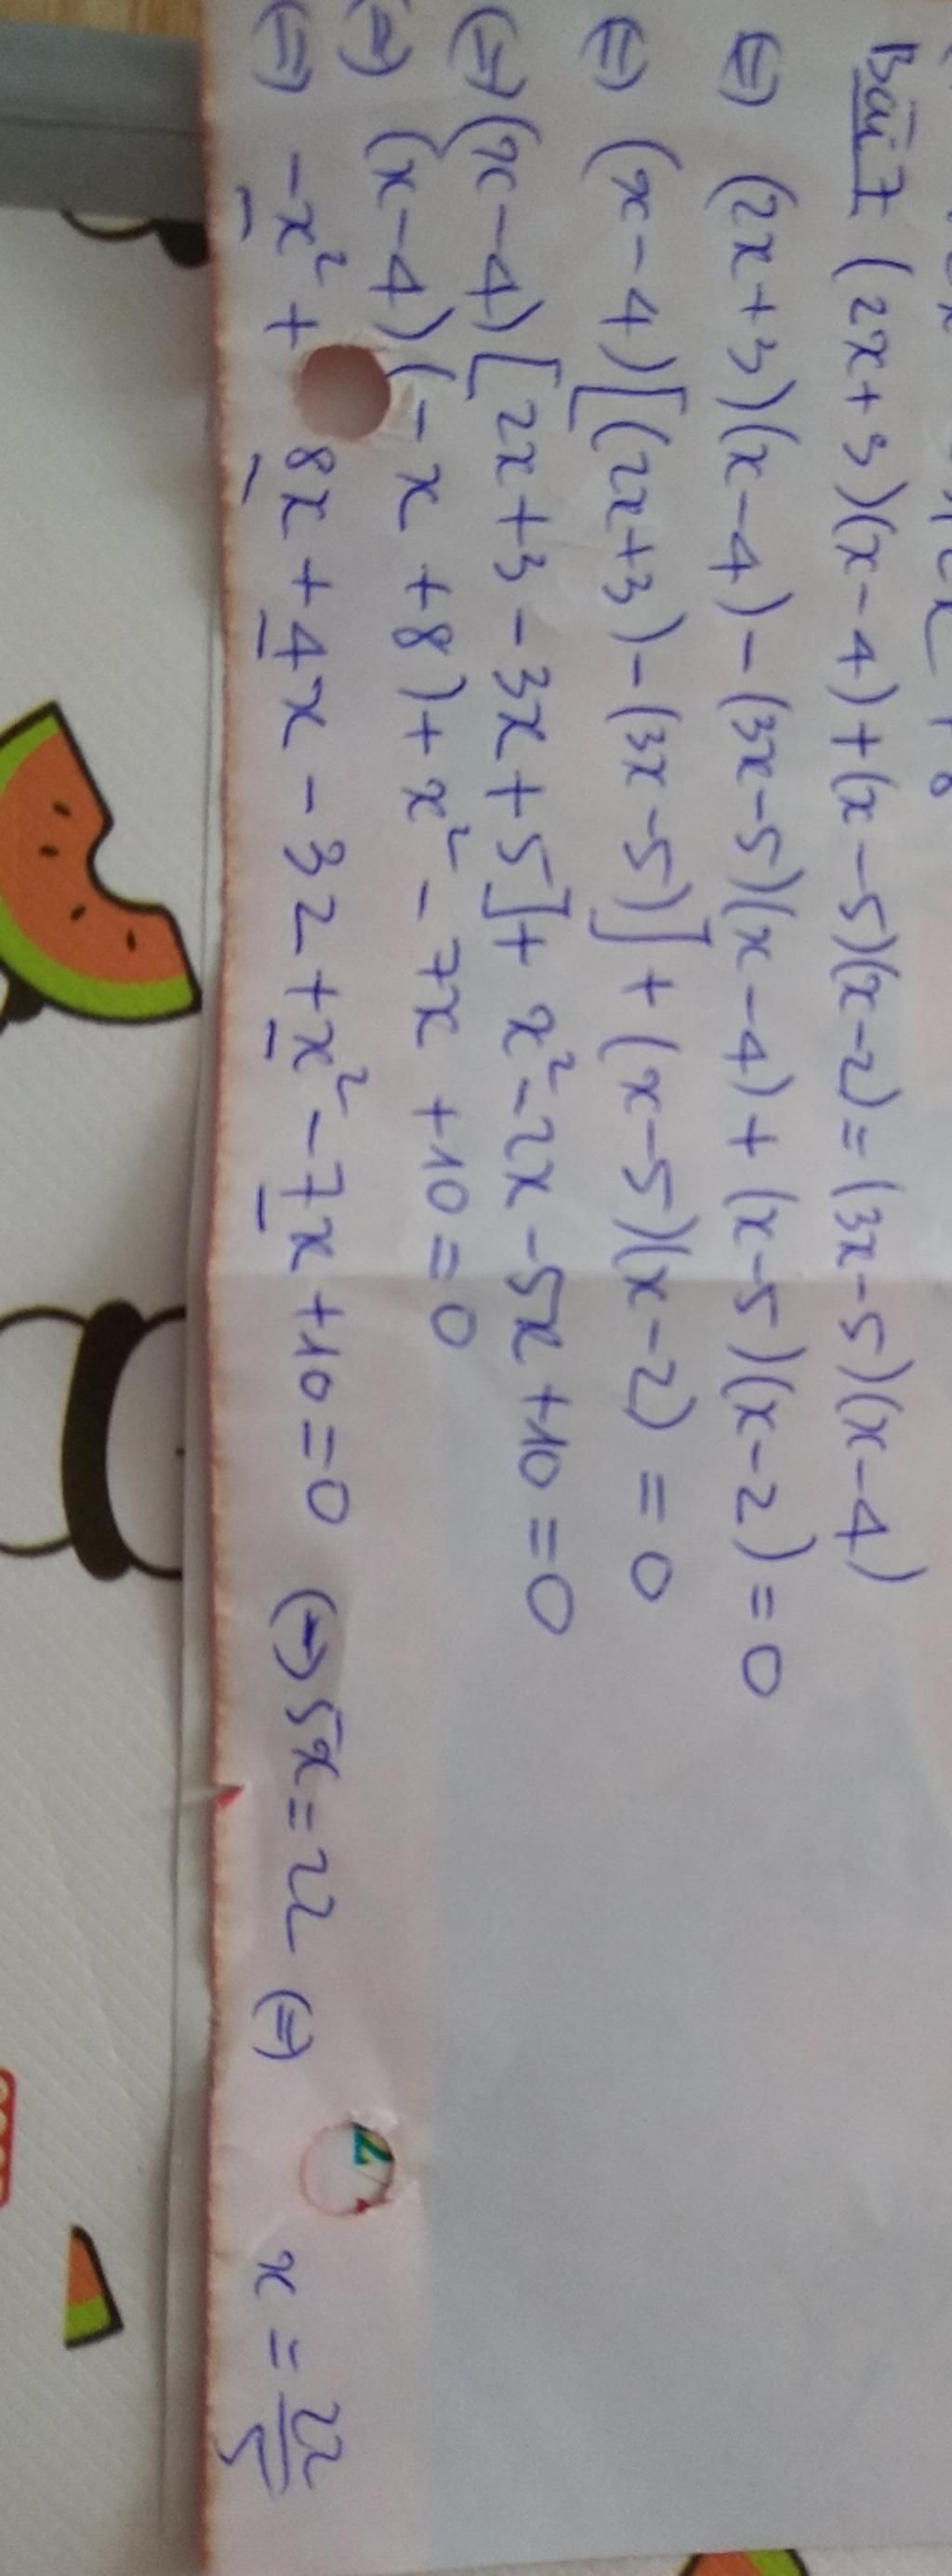 Bài 7 (2x+3)(x-4)+(x-5)(x-2)=(3x-5)(x-4)
(=) (2x+3)(x-4)-(3x-5)(x-4)+(x-5)(x-2)=0
(=) (x-4)[(2x+3)-(3x-5)]+(x-5)(x-2)=0
(=) (x-4)[2x+3-3x+5]+x²-2x-5x+10=0
(=) (x-4)(-x+8)+x²-7x+10=0
(=) -x²+8x+4x-32+x²-7x+10=0 (=) 5x=22 (=) x=22/5